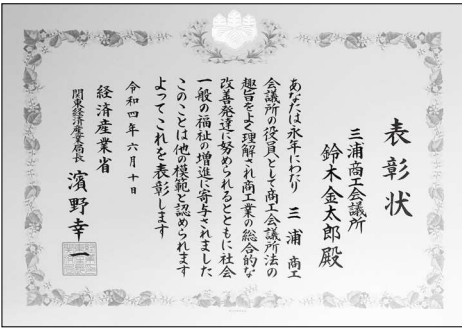 表彰状
三浦商工会議所
鈴木金太郎殿
あなたは永年にわたり 三浦 商工
会議所の役員として商工会議所法の
趣旨をよく理解され商工業の総合的な
改善発達に努められるとともに社会
一般の福祉の増進に寄与されました
このことは他の模範と認められます
よってこれを表彰します
令和四年六月十日
経済産業省
関東経済産業局長 濱野幸一